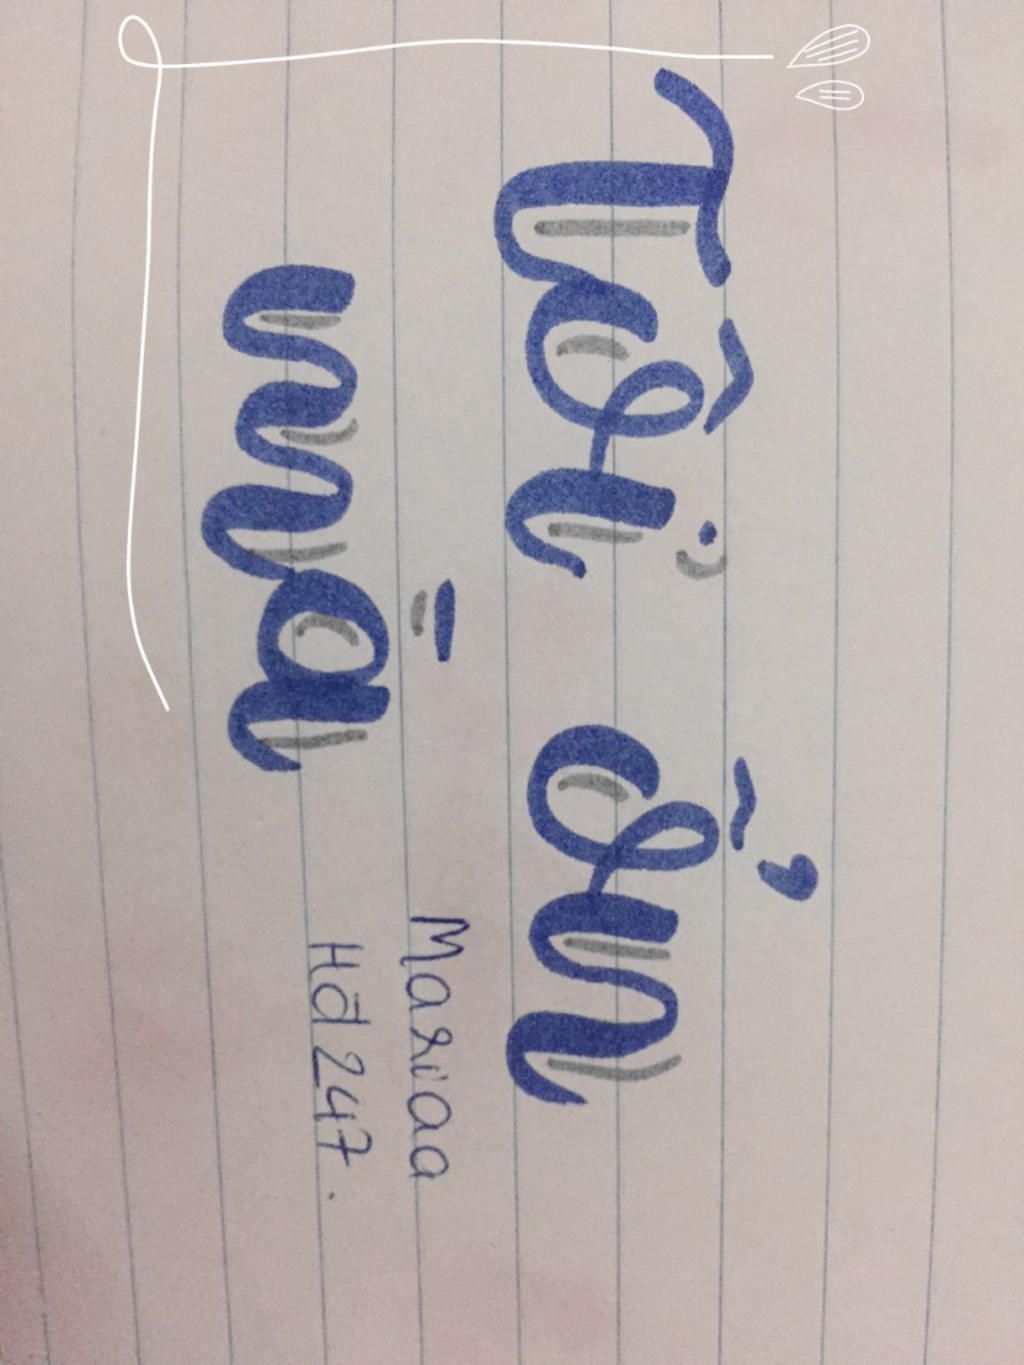 Tôi ổn
mà
Mariaa
Hd247.